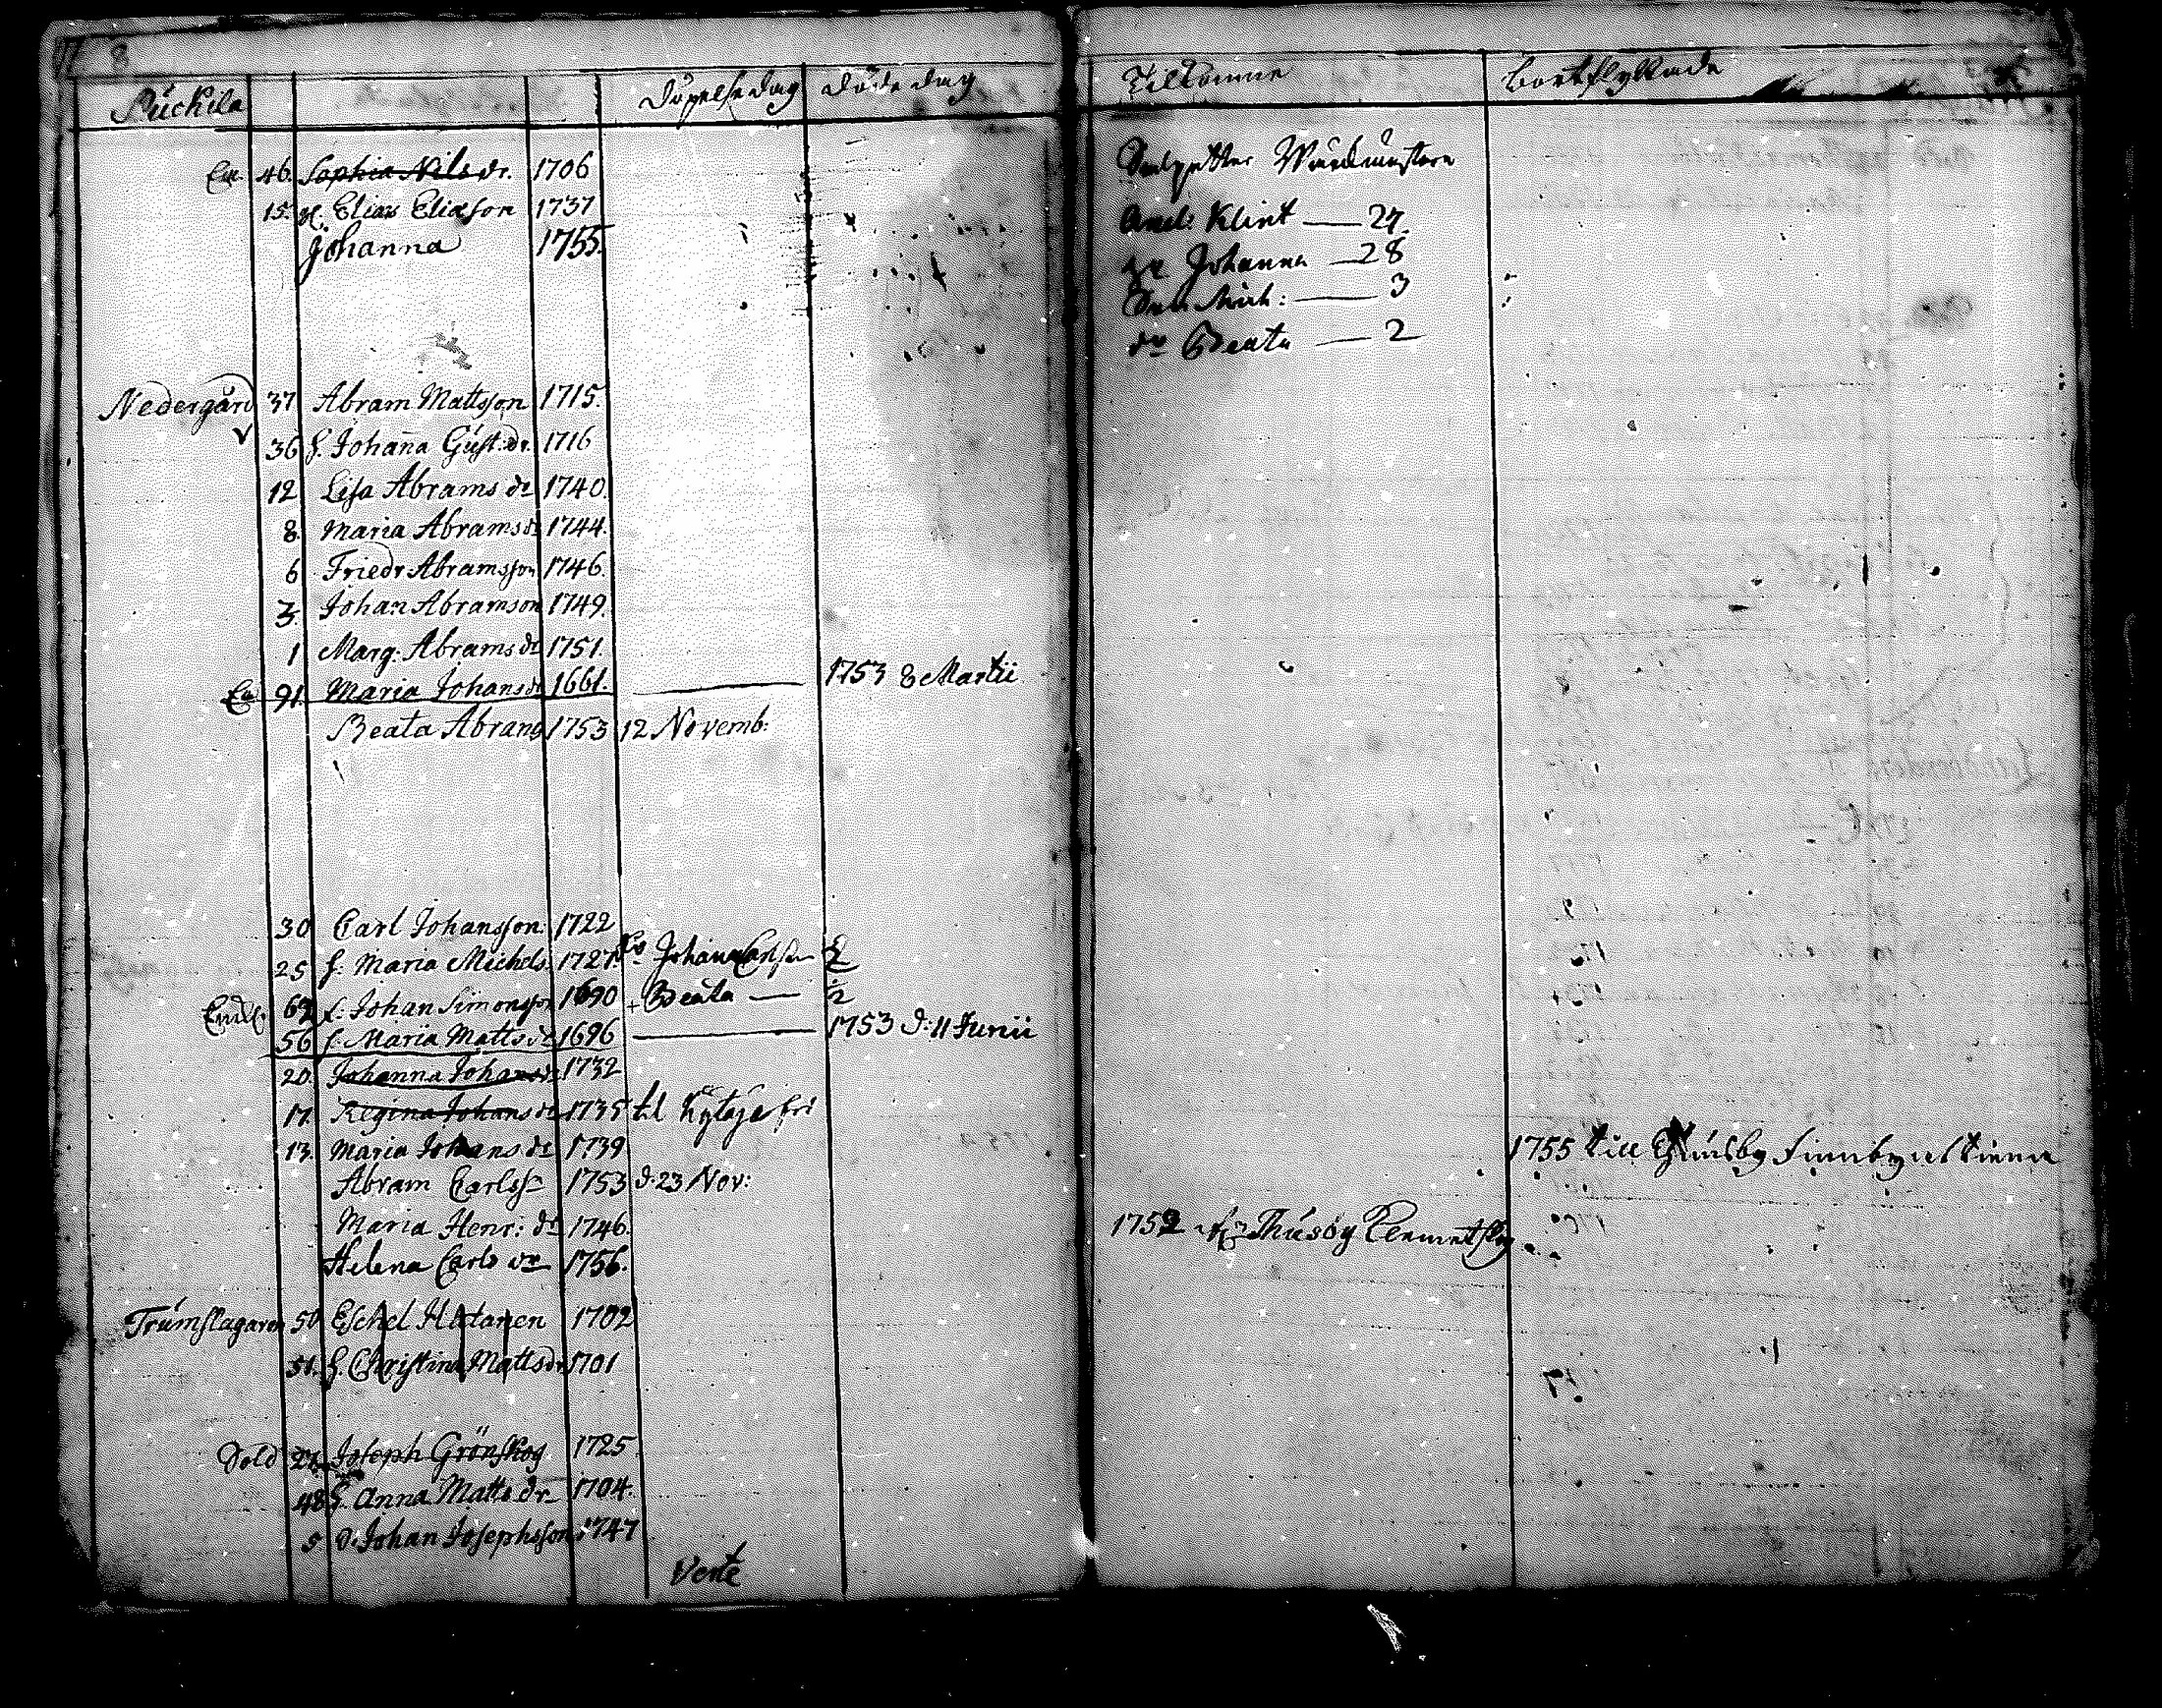 8
Puckila Döpelsedag Dödedag
En. 46. Sophia Nils dr. 1706
15. Elias Eliasson 1737
Johanna 1755.
Nedergård 37 Abram Mattsson 1715.
36 h. Johana Gust: dr. 1716
12 Lisa Abrams dr 1740.
8. Maria Abrams dr 1744.
6 Friedr Abramsson 1746.
3. Johan Abramson 1749.
1 Marg: Abrams dr 1751.
En 91. Maria Johans dr 1661. 1753 8 Martii
Beata Abrams 1753 12 Novemb:
30 Carl Johansson: 1722
25 h: Maria Michels. 1727. Johanna Carls 2
62 f: Johan Simonsson 1690 + Beata — 1/2
56 h. Maria Matts dr 1696 1753 d: 11 Junii
20. Johanna Johans dr 1732
17. Regina Johans dr 1735 til
13. Maria Johans dr 1739
Abram Carlss 1753 d. 23 Nov:
Maria Henr: dr 1746.
Helena Carls dr 1756.
Trumslagaren 50 Eschel Hatanen 1702
51. h. Christina Matts dr 1701
Sold 27 Joseph Grönskog 1725
48 h. Anna Matts dr 1704.
5 d. Johan Josephsson 1747
Verte
Tilkomne bortflyttade
Klint — 27.
Johanna — 28
Mich: — 3
dr Beata — 2
1755 till Finnby
1752 Thusby